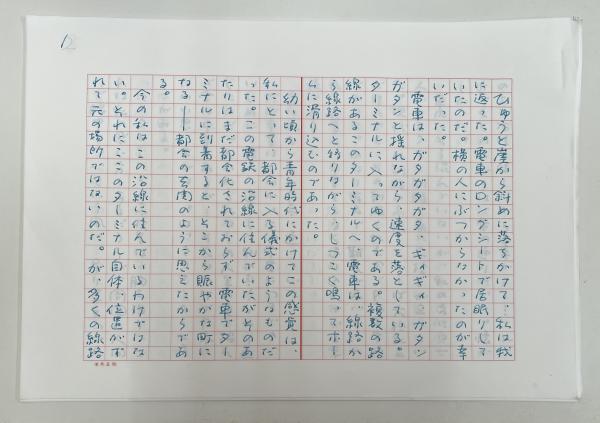 12
ひゅうと崖から斜めに落ちかけて、私は我
に返った。電車のロングシートで居眠りして
いたのだ。横の人にぶつからなかったのが幸
いだった。
電車は、ガタガタガタ、ギィギィ、ガタン
ガタンと揺れながら、速度を落としている。
ターミナルに入ってゆくのである。複数の路
線があるこのターミナルへ、電車は、線路か
ら線路へと移りながら、しつこく鳴ってホー
ムに滑り込むのであった。
幼い頃から青年時代にかけてこの感覚は、
私にとって、都会に入る儀式のようなものだ
った。この電鉄の沿線に住んでいたがそのあ
たりはまだ都会化されておらず、電車でター
ミナルに到着すると、そこから賑やかな町に
なる――都会の玄関のように思えたからであ
る。
今の私はこの沿線に住んでいるわけではな
い。それにここのターミナル自体、位置がず
れて元の場所ではないのだ。が、多くの線路